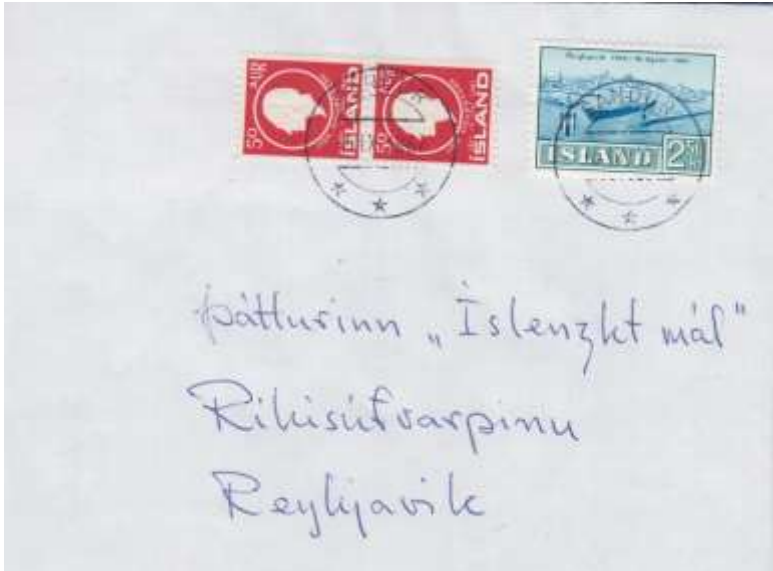 50 AUR
ÍSLAND
50 AUR
ÍSLAND
ÍSLAND 2.50
þátturinn „Íslenzkt mál“
Ríkisútvarpinu
Reykjavík